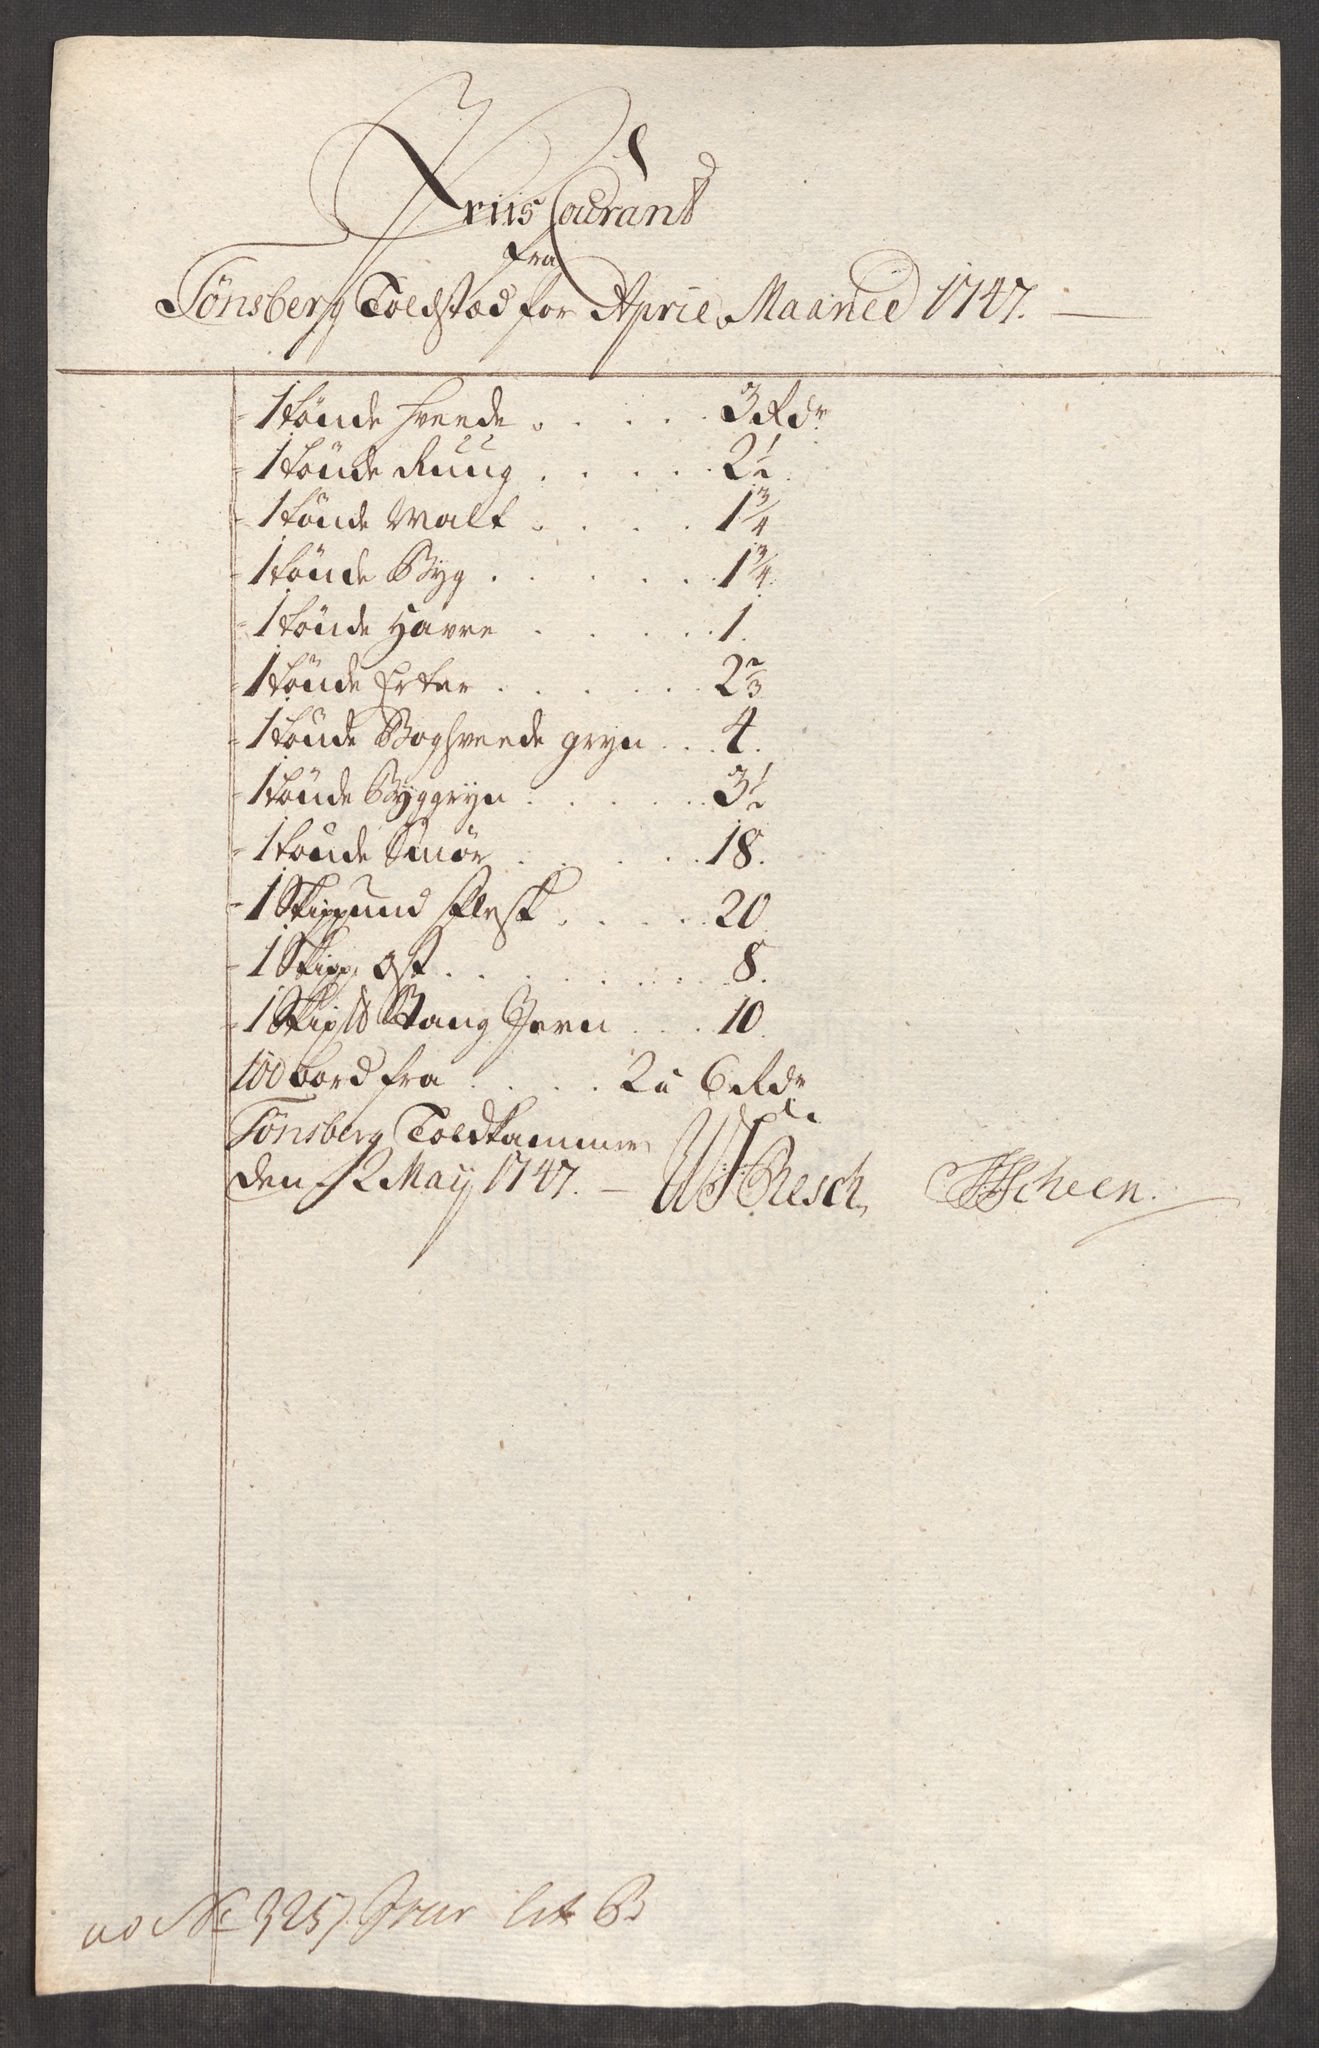 Priis Courant
fra
Tønsberg Toldstæd for April Maaned 1747.
1 tønde Hveede . . . . . 3 Rdr
1 tønde Ruug . . . . 2 1/2
1 tønde Malt . . . . 1 3/4
1 tønde Byg . . . . . . 1 3/4
1 tønde Havre . . . . . 1.
1 tønde Erter . . . . . 2 2/3
1 tønde Boghveede gryn . . . 4.
1 tønde Byggryn . . . . . 3 1/2
1 tønde Smør . . . . . 18.
1 Skippund Flesk . . . . 20
1 Skipp. Ost . . . . . . . 8.
1 Skip℔ Stang Jern . . . 10
100 bord fra . . . . 2 a 6 Rdr
Tønsberg Toldkammer
den 2 May 1747. — Resch, Scheen.
ad No 325 Jour lit B